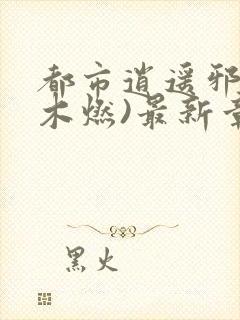 都市逍遥邪
木燃)最新章
黑火